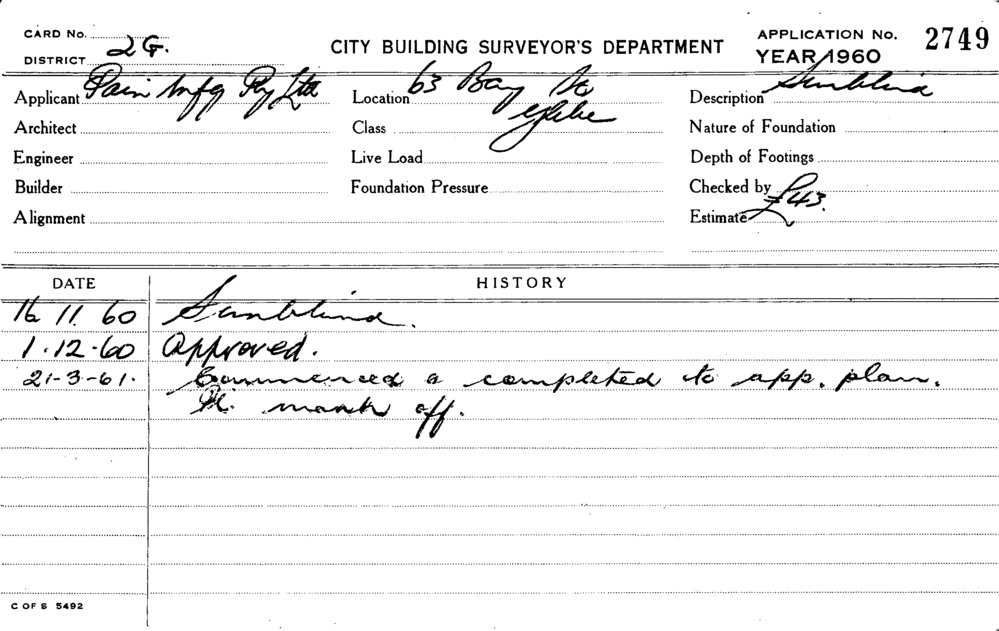 CARD No. CITY BUILDING SURVEYOR'S DEPARTMENT APPLICATION No. 2749
DISTRICT 2G. YEAR 1960
Applicant Pain Mfg Pty Ltd Location 63 Bay St Description Sunblind
Architect Class Glebe Nature of Foundation
Engineer Live Load Depth of Footings
Builder Foundation Pressure Checked by
Alignment Estimate £43.
DATE HISTORY
16 11. 60 Sunblind.
1.12.60 Approved.
21-3-61. Commenced & completed to app. plan.
Pl. mark off.
C OF S 5492